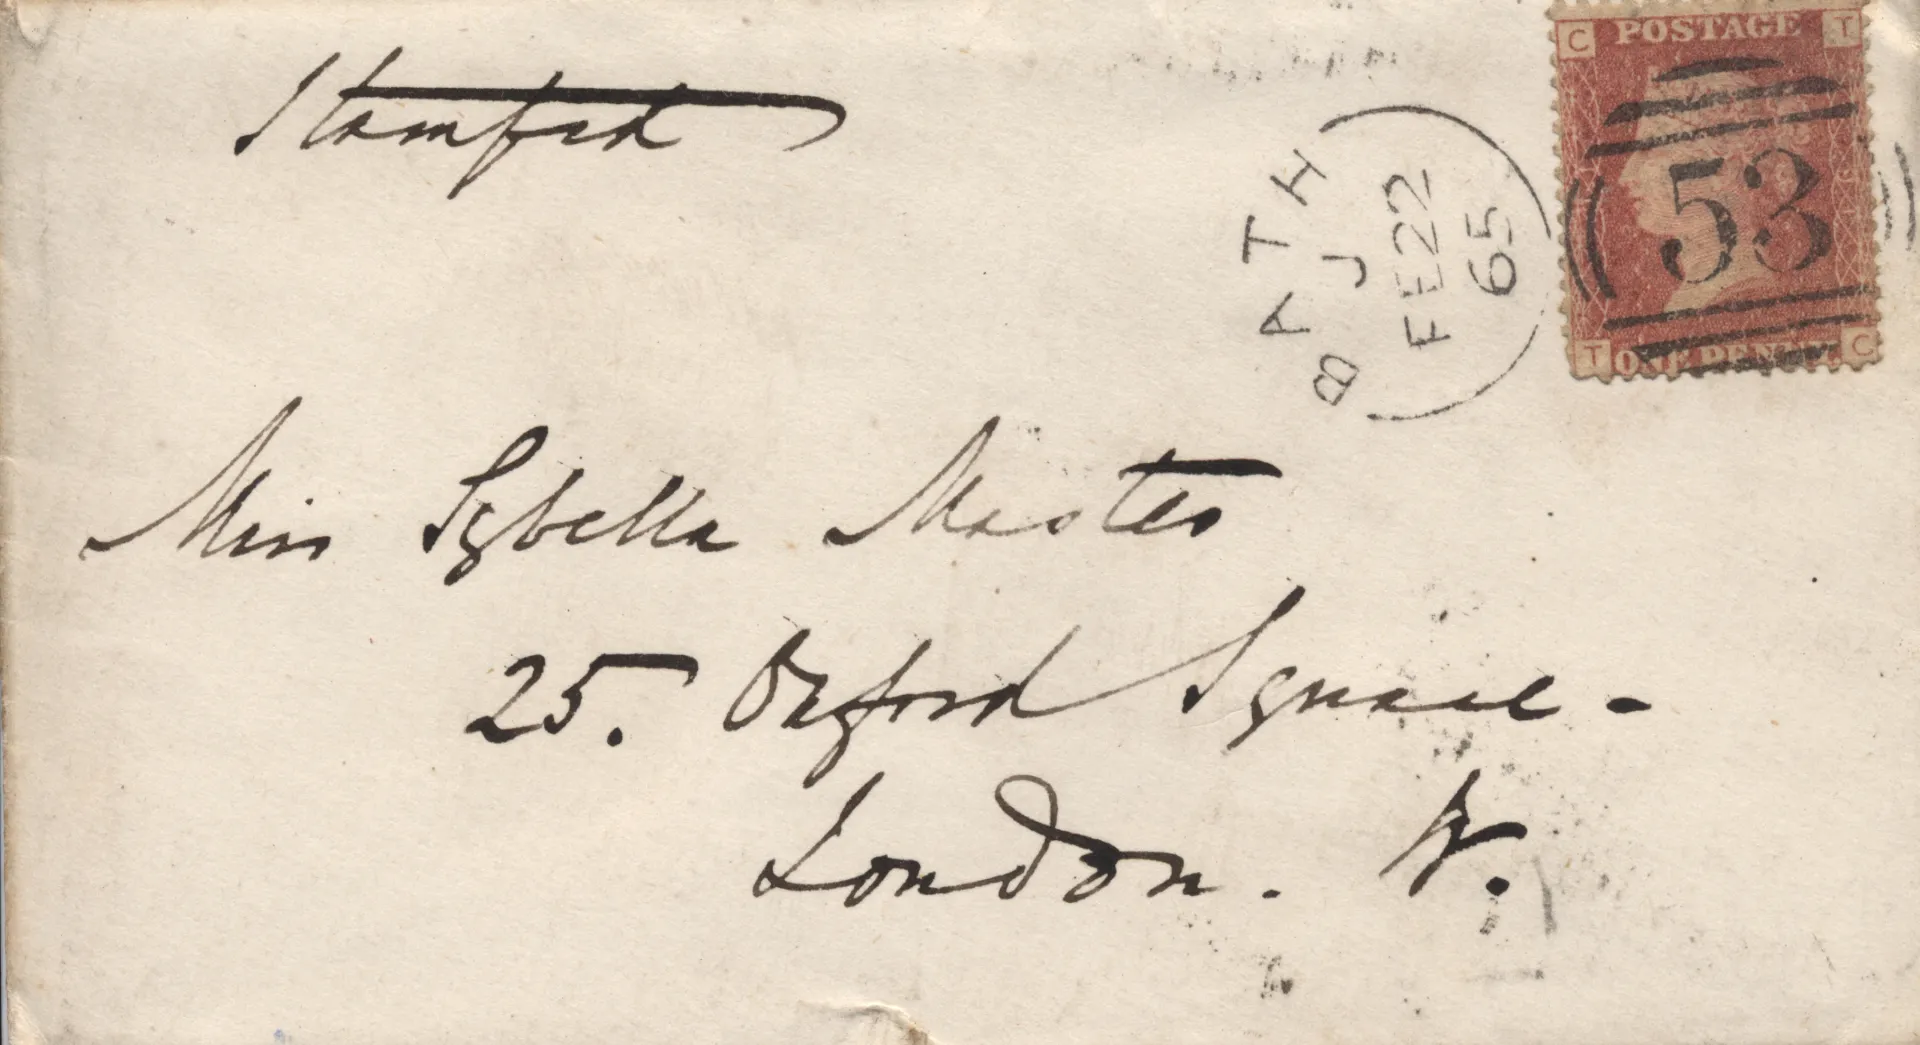 Stamford
C POSTAGE T
53
T ONE PENNY. C
BATH
J
FE 22
65
Miss Sybella Master
25. Oxford Square -
London. W.